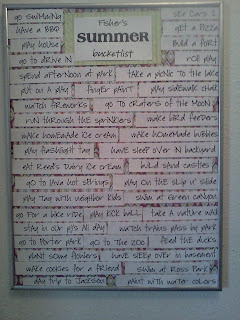 go swimming Fisher's see Cars 2
have a BBQ summer get a pizza
play house bucketlist build a fort
go to drive IN ride play
spend afternoon at park take a picnic to the lake
put on a play finger paint play sidewalk chalk
watch fireworks go to craters of the moon
run through the sprinklers make bird feeders
make homemade ice cream make homemade bubbles
play flashlight tag have sleep over in backyard
eat Reed's Dairy ice cream build sand castles
go to lava hot springs play on the slip n' slide
play tag with neighbor kids swim at green canyon
go for a bike ride play kick ball take a nature walk
stay in our pj's all day watch trains pass by park
go to porter park go to the zoo feed the ducks
plant some flowers have sleep over in basement
make cookies for a friend swim at Ross Park
day trip to Jackson paint with water colors